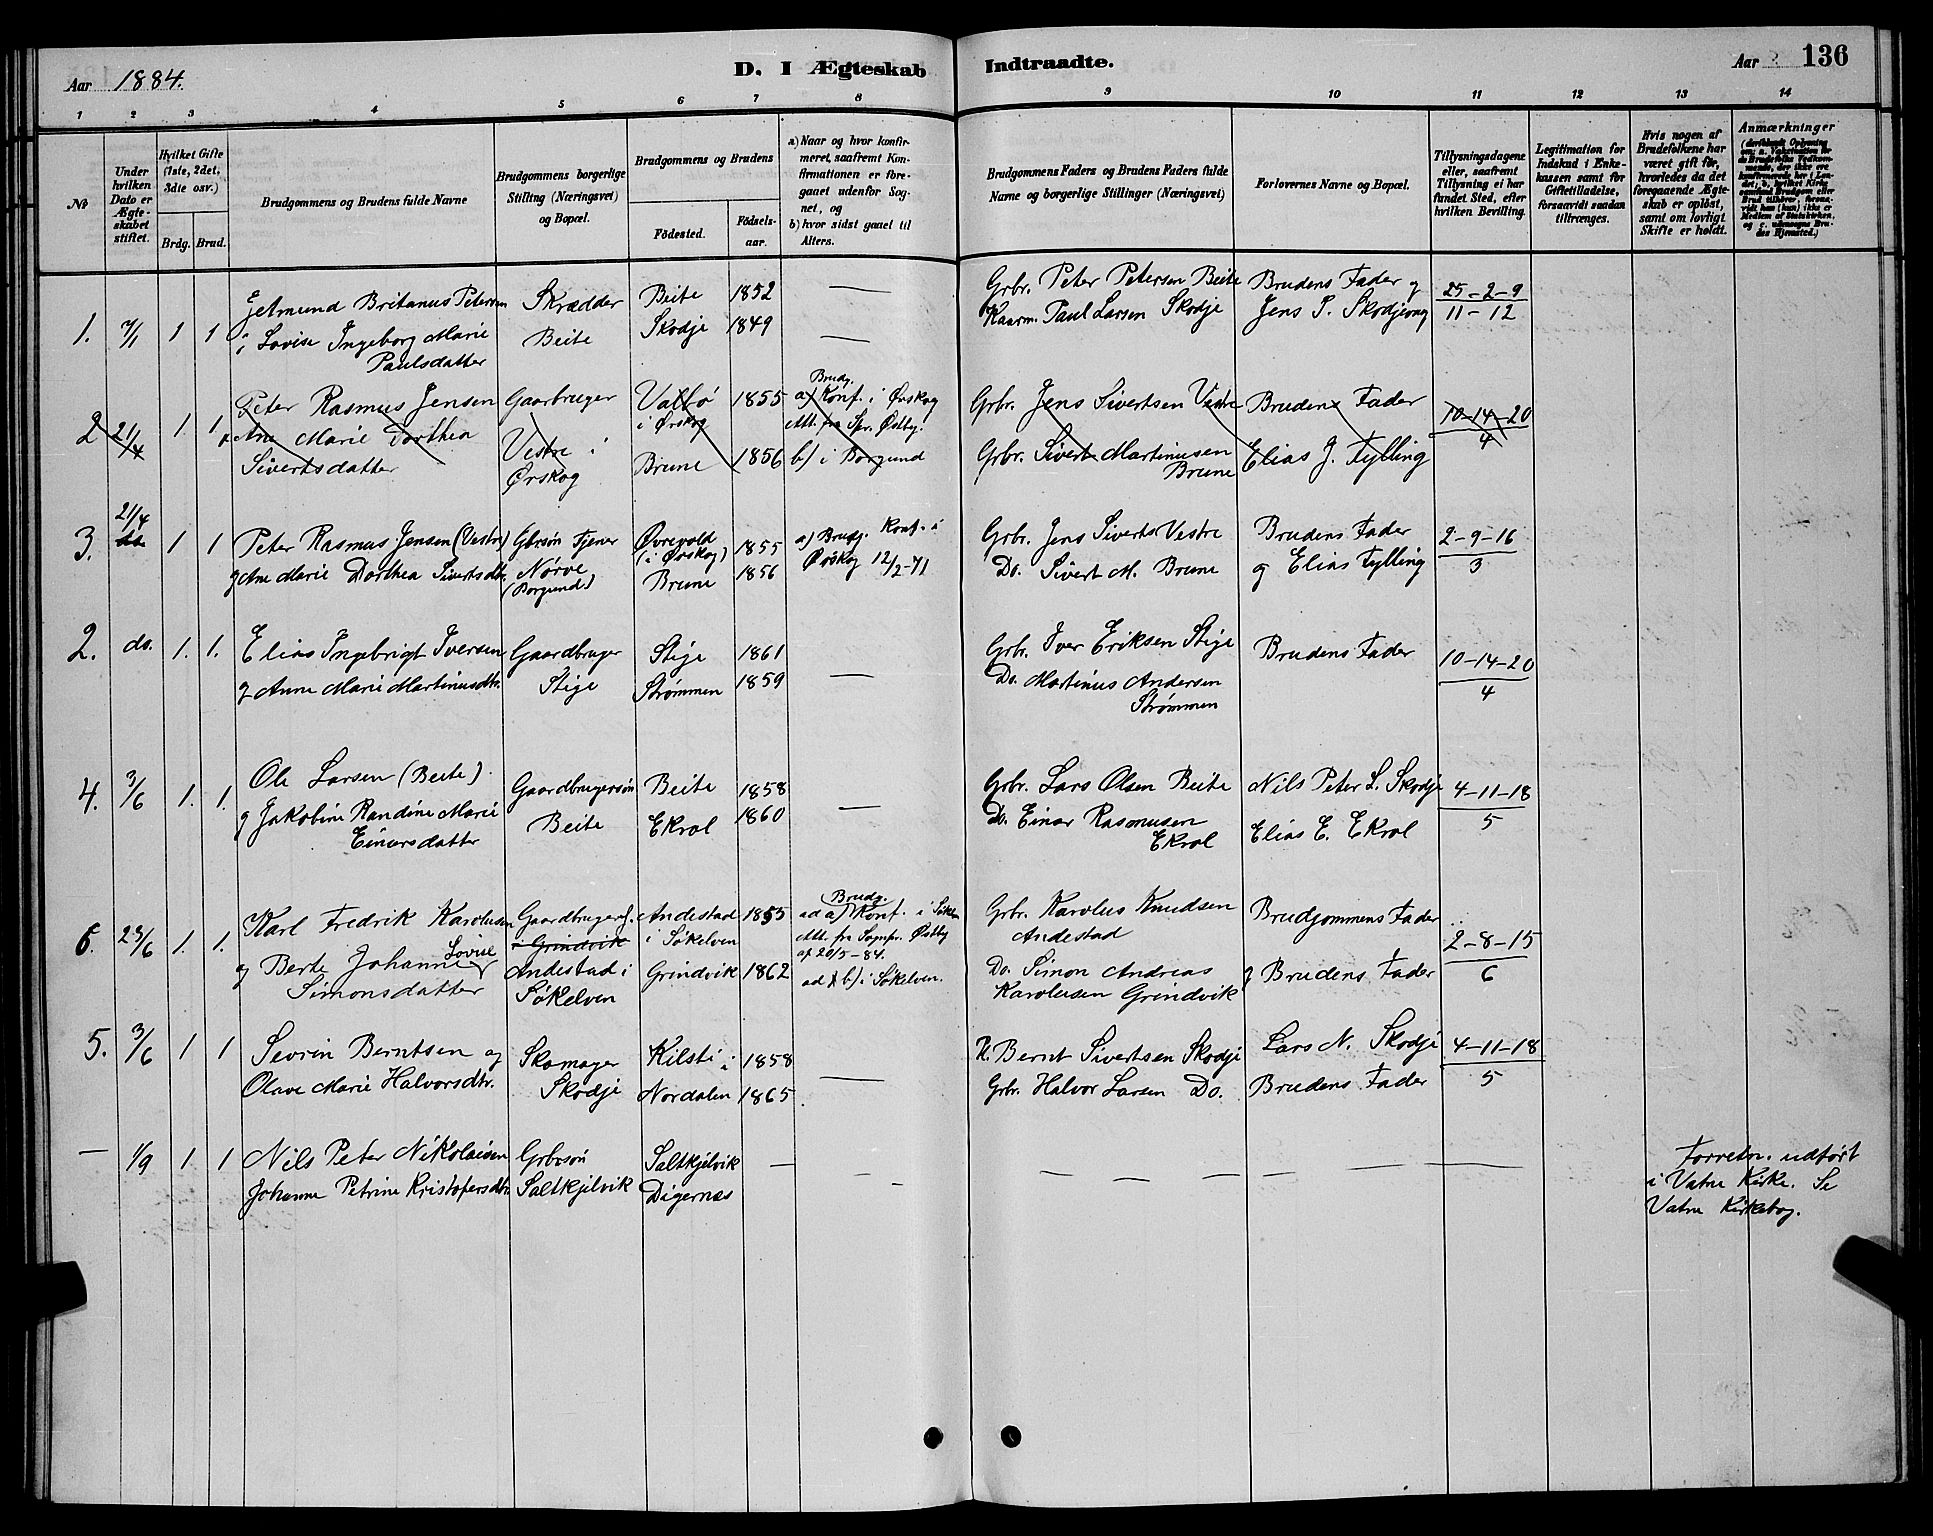 Aar 1884.
D. I Ægteskab Indtraadte.
Aar
136
1 2 3 4 5 6 7 8 9 10 11 12 13 14
No
Under hvilken Dato er Ægteskabet stiftet.
Hvilket Gifte (1ste, 2det, 3die osv.)
Brdg. Brud.
Brudgommens og Brudens fulde Navne
Brudgommens borgerlige Stilling (Næringsvei) og Bopæl.
Brudgommens og Brudens
Födested. Födselsaar.
a) Naar og hvor konfirmeret, saafremt Konfirmationen er foregaaet udenfor Sognet, og
b) hvor sidst gaaet til Alters.
Brudgommens Faders og Brudens Faders fulde Navne og borgerlige Stillinger (Næringsvei)
Forlovernes Navne og Bopæl.
Tillysningsdagene eller, saafremt Tillysning ei har fundet Sted, efter hvilken Bevilling.
Legitimation for Indskud i Enkekassen samt for Giftetilladelse, forsaavidt saadan tiltrænges.
Hvis nogen af Brudefolkene har været gift för, hvorledes da det foregaaende Ægteskab er oplöst, samt om lovligt Skifte er holdt.
Anmærkninger
1. 7/1 1 1
Jetmund Britanus Petersen
Lovise Ingeborg Marie
Paulsdatter
Skrædder
Beite
Beite 1852 —
Skodje 1849 —
Grbr. Peter Petersen Beite
Kaarm. Paul Larsen Skodje
Brudens Fader og
Jens P. Skodjevag
25-2-9
11-12
2 21/4 1. 1
Peter Rasmus Jensen
Ane Marie Dorthea
Sivertsdatter
Gaarbruger
Vestre i
Ørskog
Valbø
i Ørskog
1855
Brune 1856
Brudg.
a) Konf. i Ørskog
Att. fra Spr. Østby.
b) i Borgund
Grbr. Jens Sivertsen Vestre
Grbr. Sivert Martinusen
Brune
Brudens Fader
Elias J. Fylling
10-14-20
4
3. 21/4 1 1
Peter Rasmus Jensen (Vestre)
og Ane Marie Dorthea Sivertsdtr.
Gbrsøn Tjener
Nørve
(Borgund)
Øvrevold
(i Ørskog)
1855
Brune 1856
a) Brudg. Konf. i
Ørskog 12/2-71
Grbr. Jens Siverts Vestre
Do. Sivert M. Brune
Brudens Fader
og Elias Fylling
2-9-16
3
2. do. 1. 1.
Elias Ingebrigt Iversen
og Anne Marie Martinusdtr.
Gaardbruger
Stige
Stige 1861
Strømmen 1859
—
Grb. Iver Eriksen Stige
Do. Martinus Andersen
Strømmen
Brudens Fader
10-14-20
4
4. 3/6 1. 1.
Ole Larsen (Beite)
og Jakobine Randine Marie
Einarsdatter
Gaardbrugersøn
Beite
Beite 1858
Ekrol 1860
—
Grbr. Lars Olsen Beite
Do. Einar Rasmusen
Ekrol
Nils Peter L. Skodje
Elias E. Ekrol
4-11-18
5
6. 23/6 1. 1.
Karl Fredrik Karolusen
og Berte Johanne Lovise
Simonsdatter
Gaardbruger
i Grindvik
Andestad i
Søkelven
Andestad 1855
i Søkelven
Grindvik 1862
Brudg.
ad a) Konf. i Søkelv.
Att. fra Sognpr. Østby
af 20/5-84.
ad b) i Søkelven.
Grbr. Karolus Knudsen
Andestad
Do. Simon Andreas
Karolusen Grindvik
Brudgommens Fader
og Brudens Fader
2-8-15
6
5. 3/6 1 1
Sevrin Berntsen og
Olave Marie Halvorsdtr.
Skomager
Skodje
Kilsti i 1858
Nordalen 1865
—
Bernt Sivertsen Skodje
Grbr. Halvor Larsen Do.
Lars N. Skodje
Brudens Fader
4-11-18
5
— 1/9 1 1
Nils Peter Nikolaisen
Johanne Petrine Kristofersdtr.
Grbrsøn
Saltkjelvik
Saltkjelvik —
Digernes
Forretn. udført
i Vatne Kirke. Se
Vatne Kirkebog.